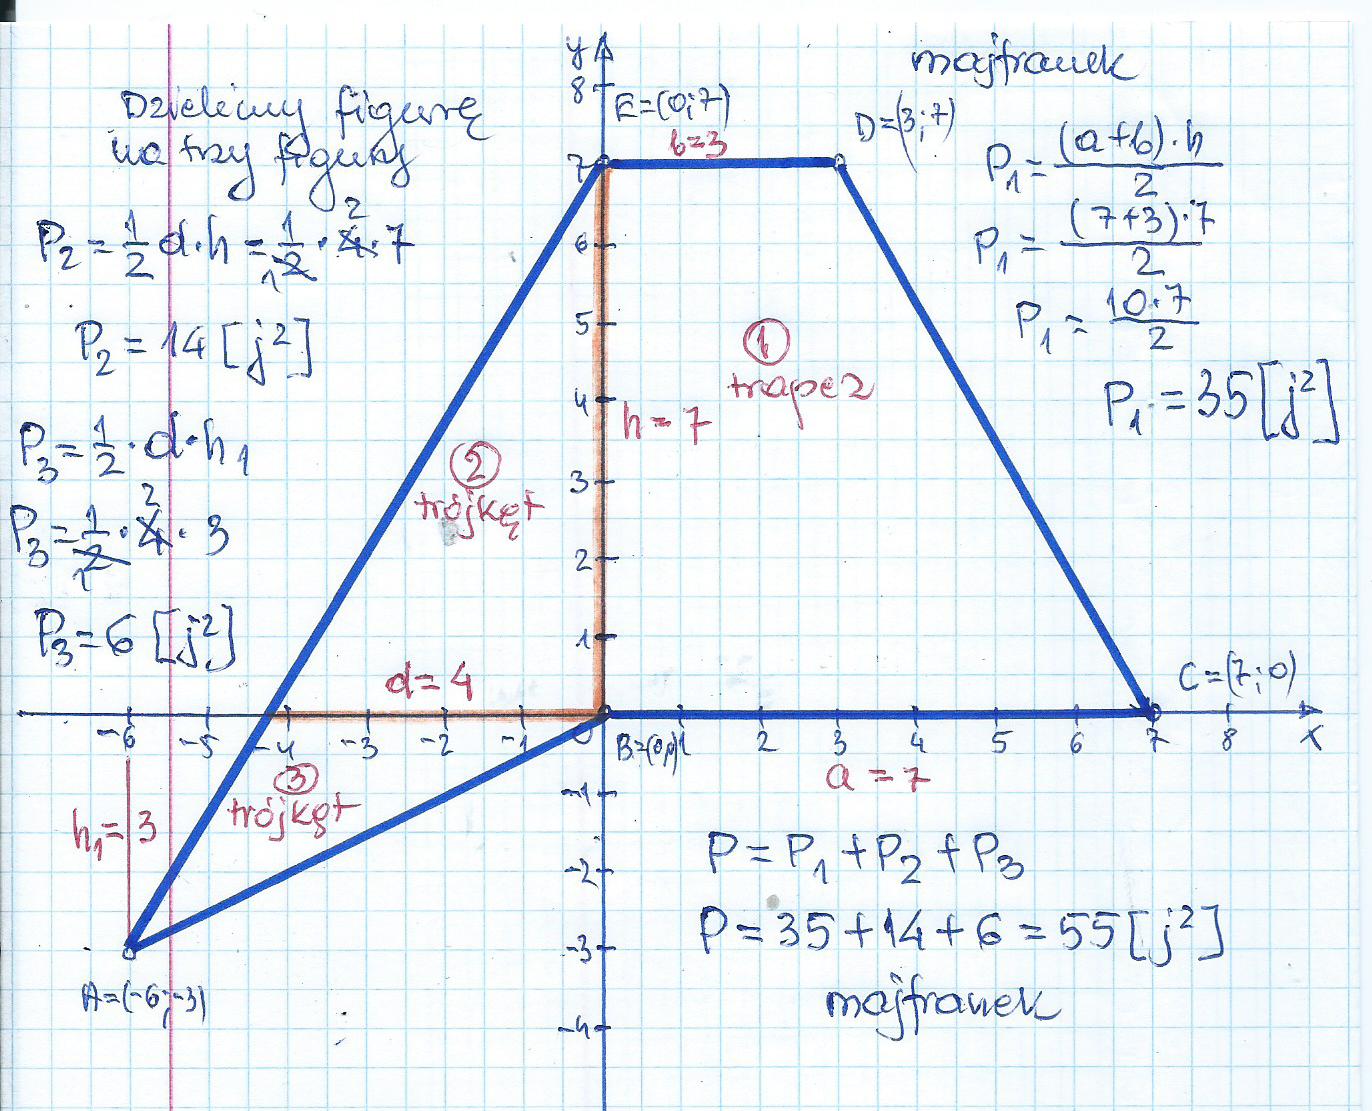 majfranek
Dzielimy figurę
na trzy figury
P₂ = 1/2 d·h = 1/2 · 4 · 7
1 2
P₂ = 14 [j²]
P₃ = 1/2 · d · h₁
P₃ = 1/2 · 4 · 3
1 2
P₃ = 6 [j²]
P₁ = (a+b)·h/2
P₁ = (7+3)·7/2
P₁ = 10·7/2
P₁ = 35 [j²]
y
8
7
6
5
4
3
2
1
E=(0;7)
b=3
D=(3;7)
① trapez
h=7
② trójkąt
d=4
C=(7;0)
-6 -5 -4 -3 -2 -1 0 1 2 3 4 5 6 7 8 x
B=(0,0)
a=7
③
trójkąt
h₁=3
-1
-2
-3
-4
A=(-6;-3)
P=P₁+P₂+P₃
P=35+14+6=55[j²]
majfranek